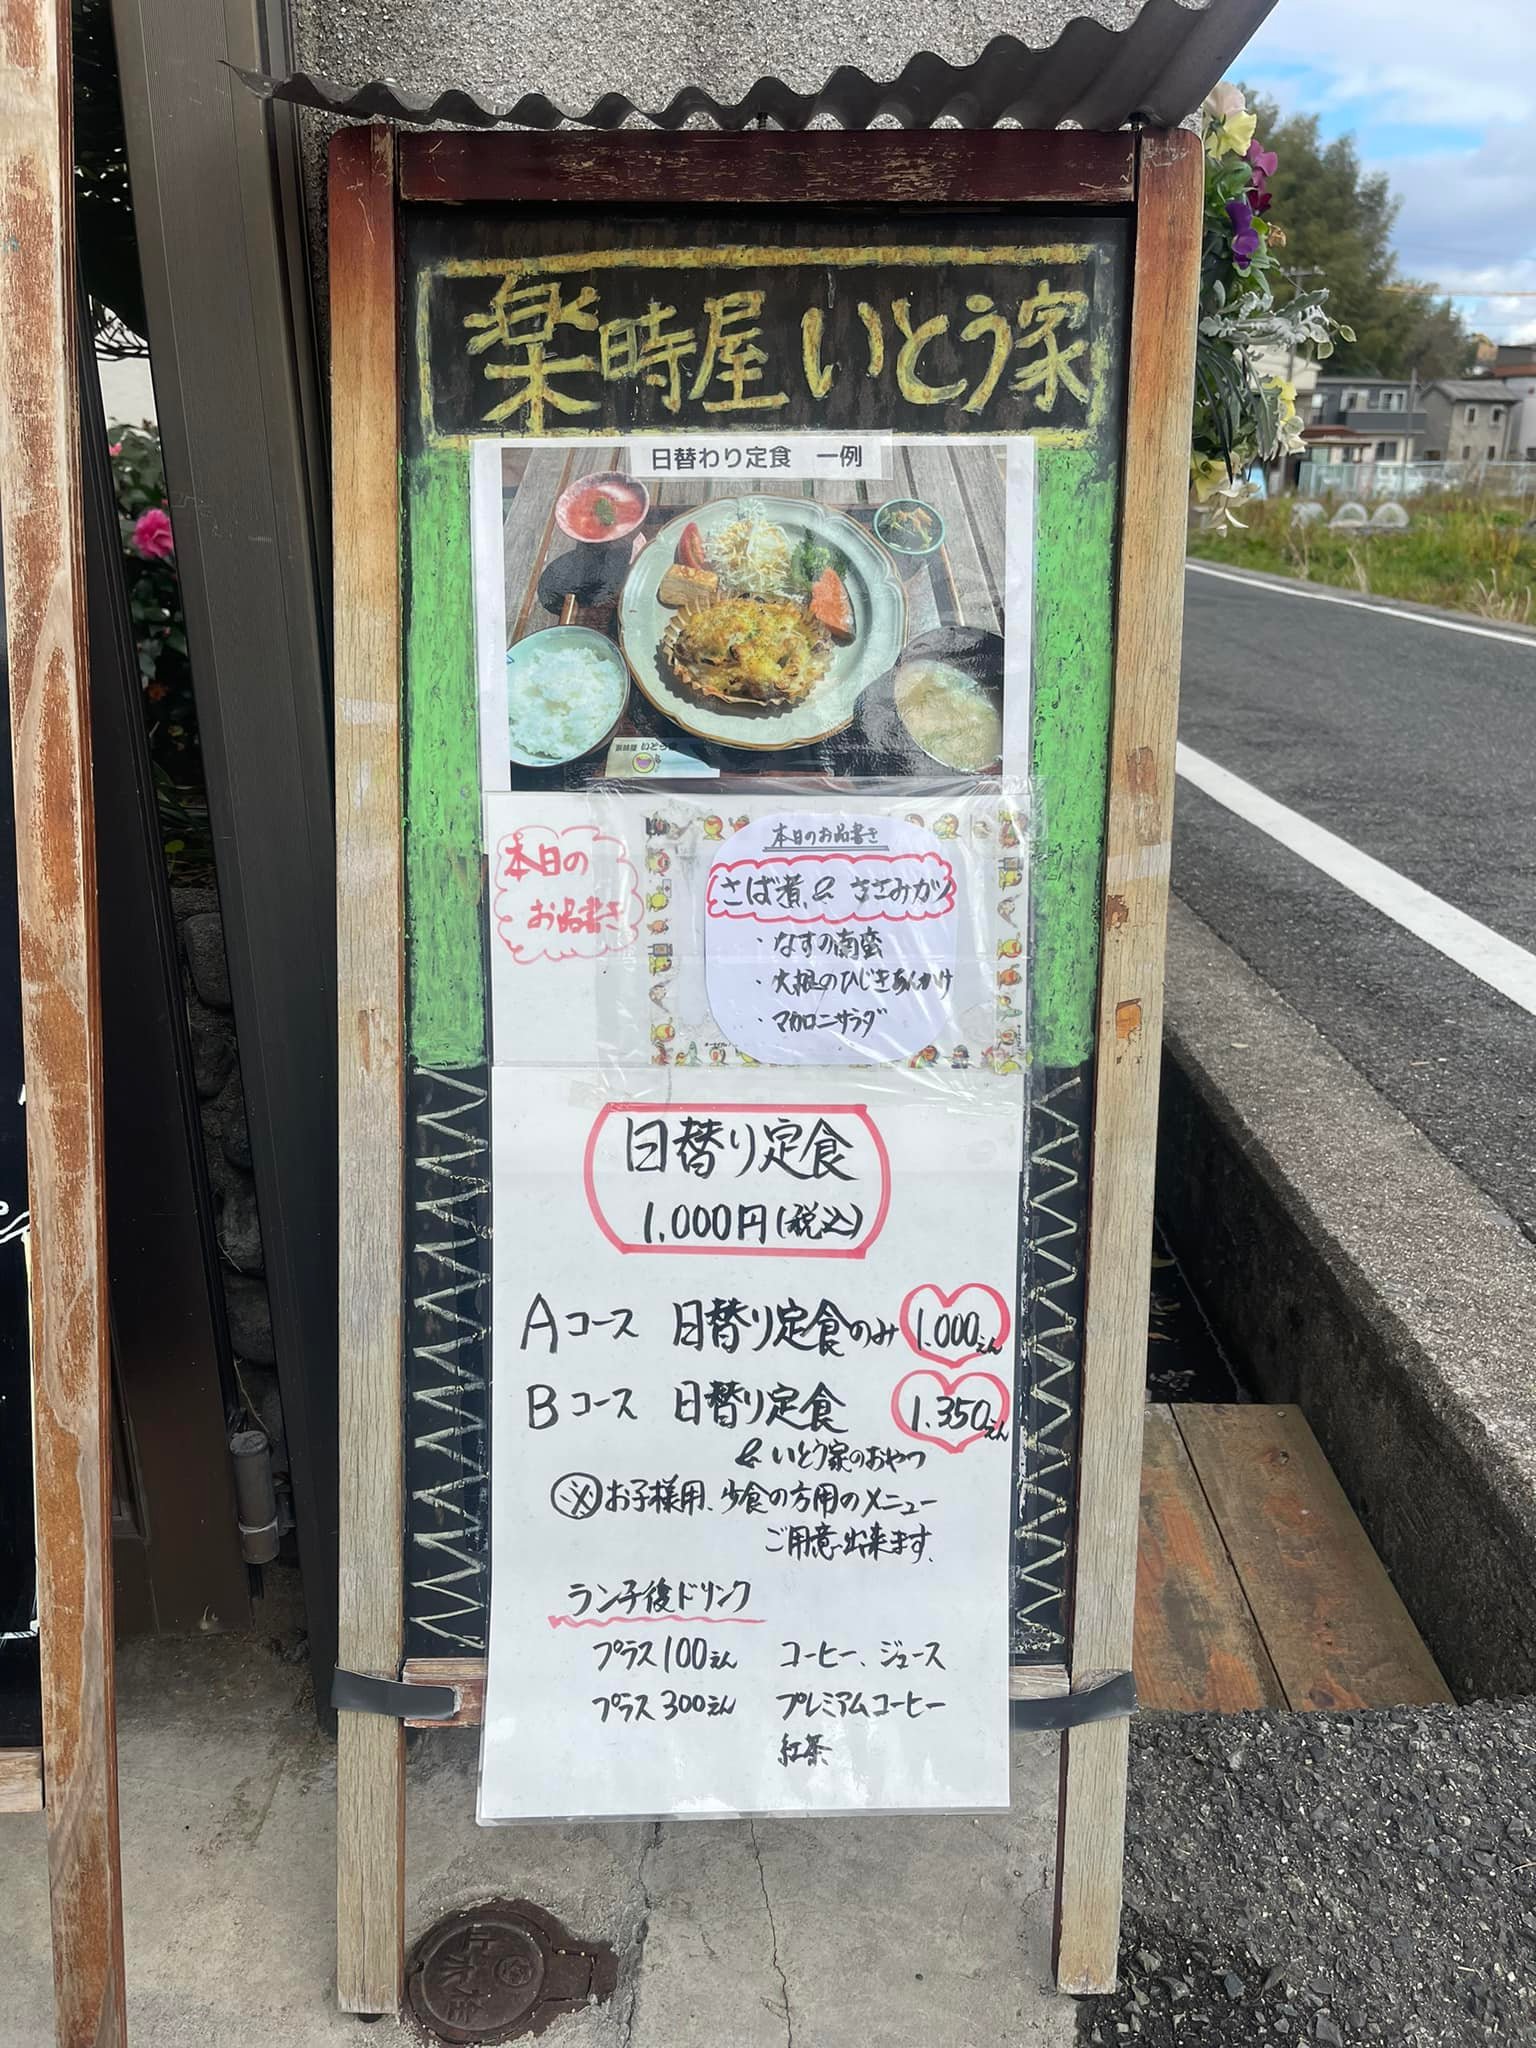 楽時屋 いとう家
日替わり定食 一例
いとう家
本日の
お品書き
本日のお品書き
さば煮 & ささみカツ
・なすの南蛮
・大根のひじきあんかけ
・マカロニサラダ
日替り定食
1,000円(税込)
Aコース 日替り定食のみ 1.000えん
Bコース 日替り定食 1.350えん
& いとう家のおやつ
※お子様用、少食の方用のメニュー
ご用意出来ます。
ランチ後ドリンク
プラス100えん コーヒー、ジュース
プラス300えん プレミアムコーヒー
紅茶
止水栓